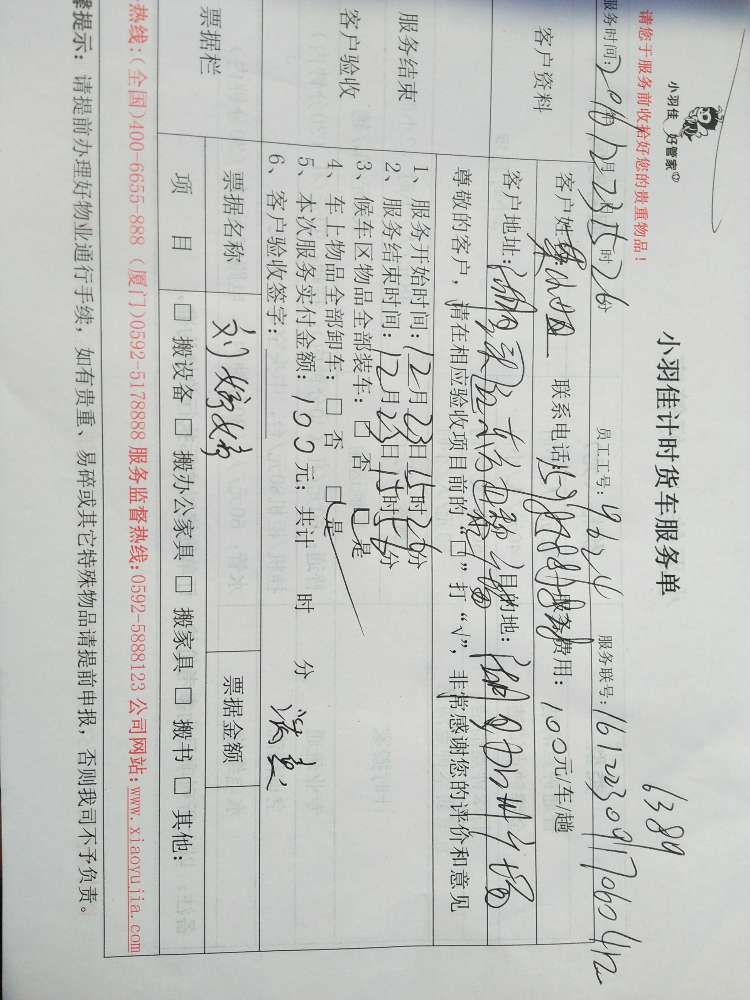 小羽佳 好管家
小羽佳计时货车服务单
6389
请您于服务前收拾好您的贵重物品！
服务时间：2016年12月23日15时26分 员工工号：9624 服务联号：
客户资料
客户姓名： 小姐 联系电话： 服务费用：100元/车/趟
客户地址： 目的地：
尊敬的客户，请在相应验收项目前的“□”打“√”，非常感谢您的评价和意见
服务结束
客户验收
1、服务开始时间：12月23日15时26分
2、服务结束时间：12月23日15时56分
3、候车区物品全部装车：□ 否 □是
4、车上物品全部卸车：□ 否 □是
5、本次服务实付金额：100元；共计 时 分
6、客户验收签字：
票据栏
票据名称 票据金额
项 目 □ 搬设备 □ 搬办公家具 □ 搬家具 □ 搬书 □ 其他：
热线：(全国)400-6655-888 (厦门)0592-5178888 服务监督热线：0592-5888123 公司网站：www.xiaoyujia.com
提示：请提前办理好物业通行手续，如有贵重、易碎或其它特殊物品请提前申报，否则我司不予负责。